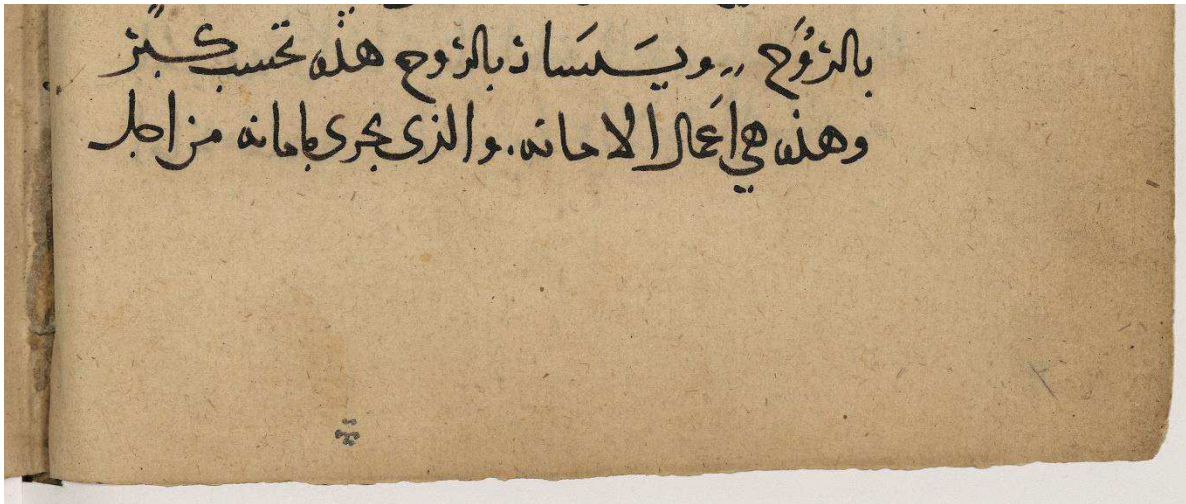 بالرُّوَح ,, ويسَسَسا ذ بالروح هذه تحسب كبيز
وهذه هي اعَمال الامانه . والذي يجرى بامانه من اجل